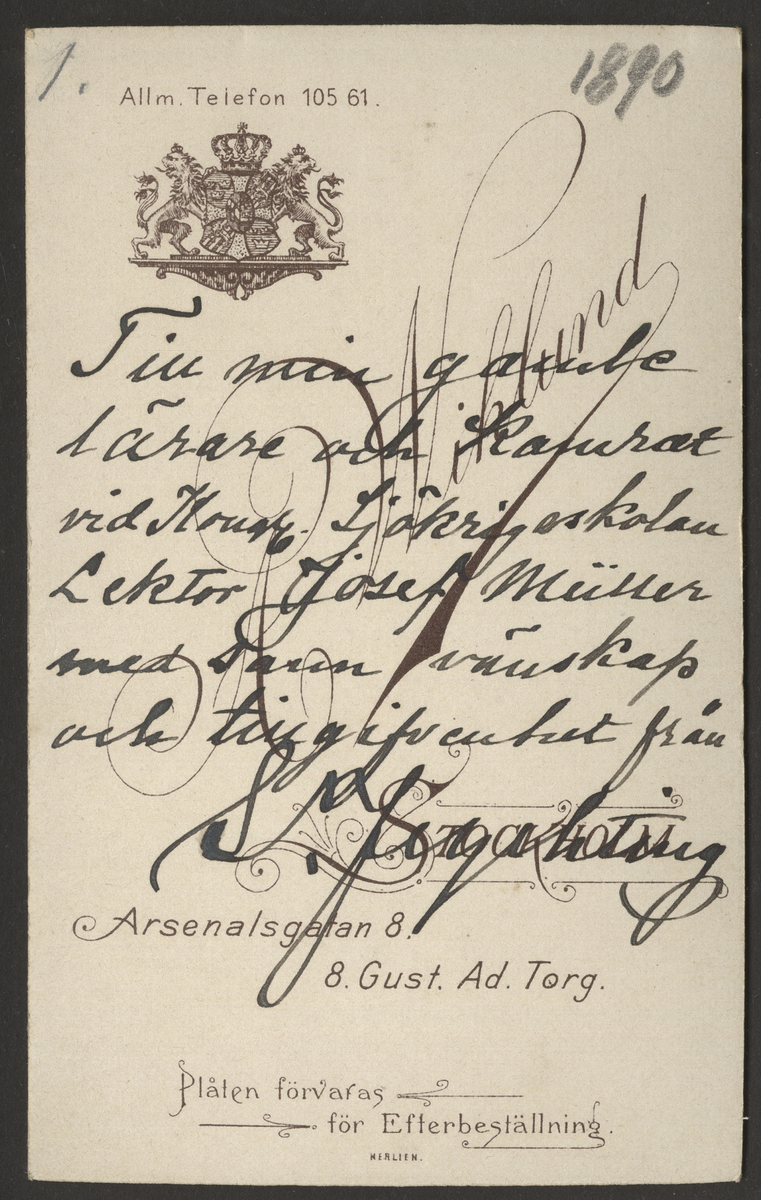 1.
1890
Allm. Telefon 105 61.
Wiklund
Till min gamle
lärare och Kamrat
vid Kongl. Sjökrigsskolan
Lektor Josef Müller
med sann vänskap
och tillgifvenhet från
Stockholm
Arsenalsgatan 8.
8. Gust. Ad. Torg.
Plåten förvaras
för Efterbeställning.
NERLIEN.